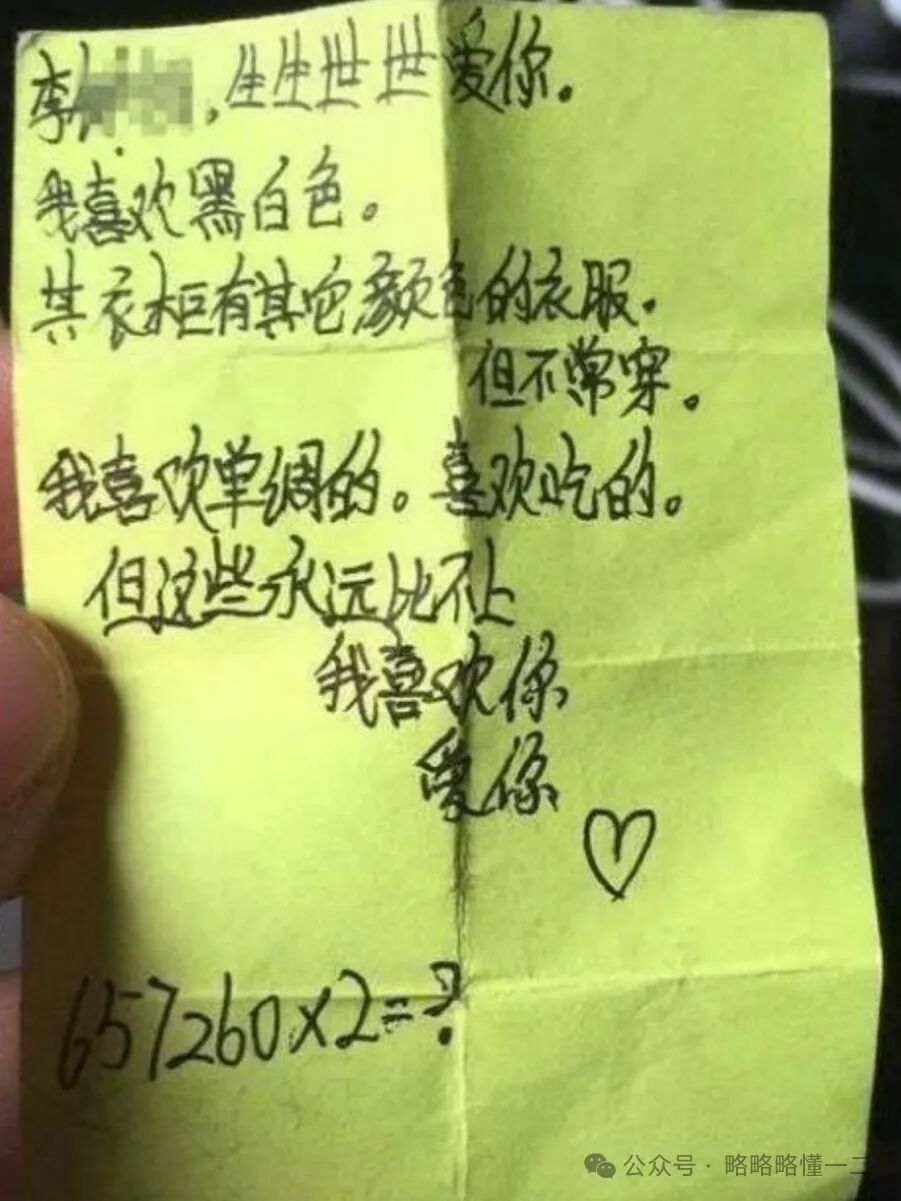 李，生生世世爱你。
我喜欢黑白色。
其衣柜有其它颜色的衣服.
但不常穿。
我喜欢单绸的。喜欢吃的。
但这些永远比不上
我喜欢你
爱你
657260×2=?
公众号·略略略懂一二